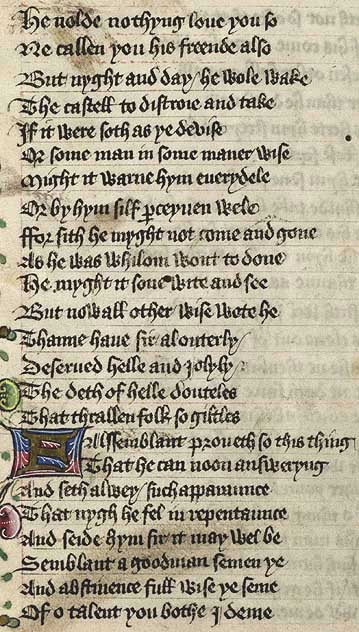 He nolde nothyng loue you so
Ne callen you his freende also
But nyght and day / he wole wake
The castell to distroie and take
If it were soth as ye devise
Or some man in some maner wise
Might it warne hym euerydele
Or by hym silf perceyuen wele
ffor sith he myght not come and gone
As he was whilom wont to done
He myght it sone wite and see
But now all other wise wote he
Thanne haue sir al outerly /
Deserued helle and iolyly /
The deth of helle douteles
That thrallen folk so giltles
Falssemblant proueth so this thing
That he can noon answeryng
And seth alwey / such apparaunce
That nygh he fel in repentaunce
And seide hym sir it may wel be
Semblant a good man semen ye
And abstinence full wise ye seme
Of o talent you bothe I deme